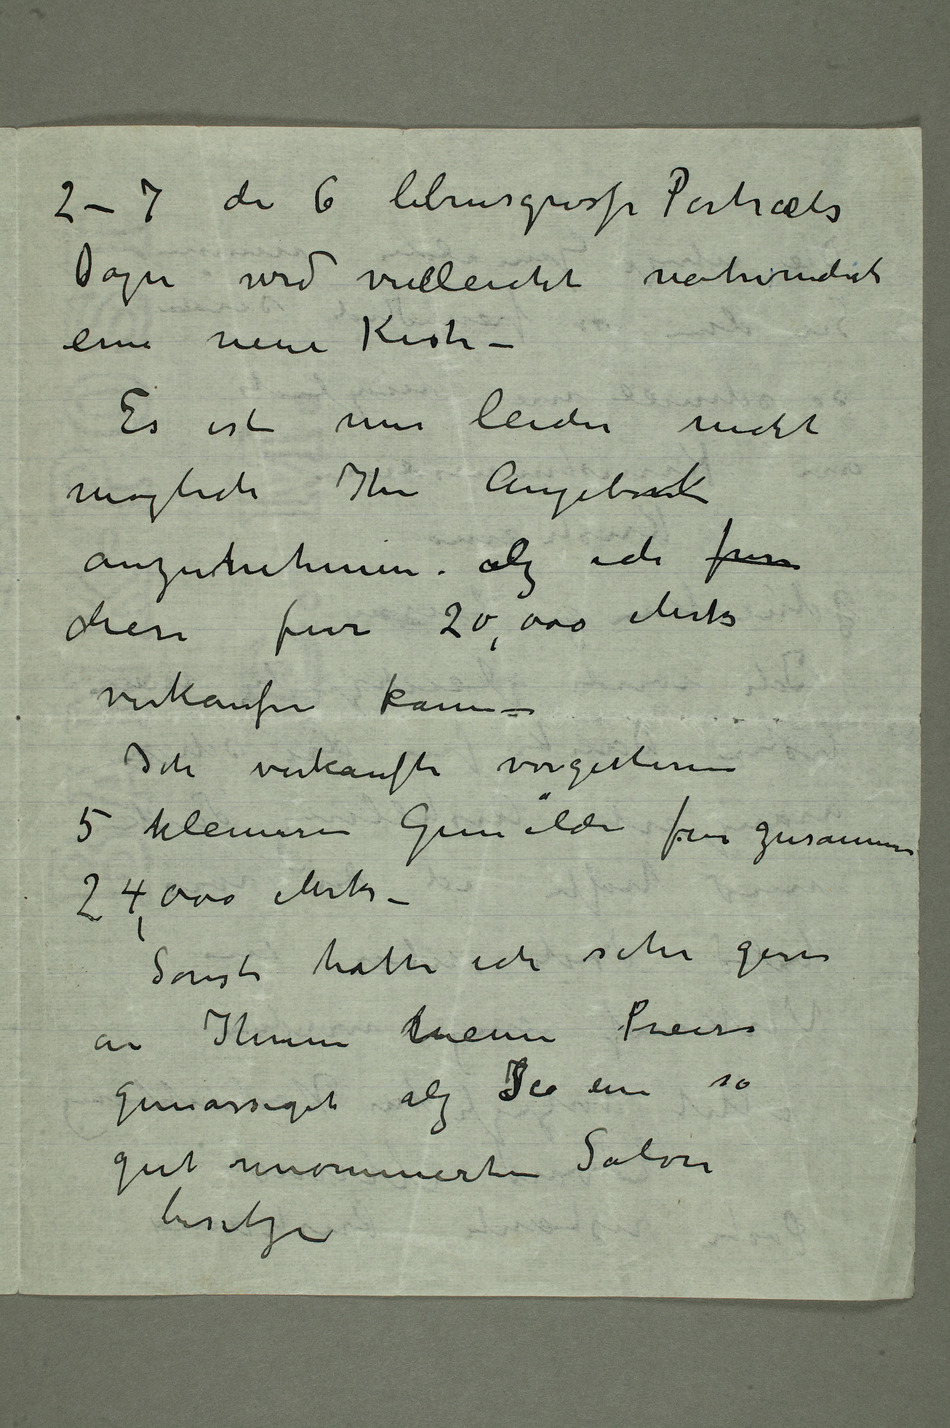 2 – 7 die 6 lebensgrosse Portræts
Dazu wird vielleicht notwendich
eine neue Kiste –
Es ist mir leider nicht
möglich Ihr Angebot
anzunehmen. alz ich für
diese für 20,000 Mrks
verkaufen kann –
Ich verkaufte vorgestern
5 kleinere Gemälde für zusammen
24,000 Mrks –
Sonst hätte ich sehr gern
an Ihnen meine Preise
gemässiget alz Sie ein so
gut renommierten Salon
besitzen